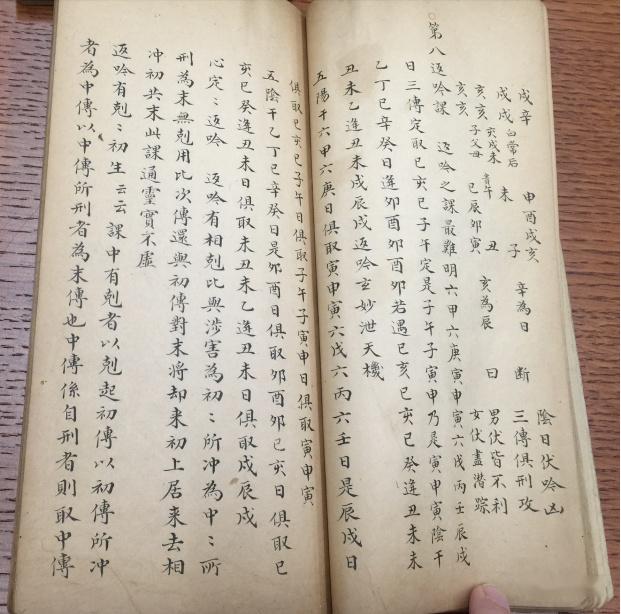 申酉戌亥
未 子 辛為日 斷
丑 亥為辰 曰
巳辰卯寅
戌辛
戌戌 白常后
亥亥
亥亥 子父母
陰日伏吟凶
三傳俱刑攻
男伏皆不利
女伏盡潛踪
第八返吟課 返吟之課最難明六甲六庚寅申寅六戊丙壬辰戌
日三傳定取巳亥巳子午定是子午子寅申乃是寅申寅陰干
乙丁己辛癸日逢卯酉卯酉卯若遇巳亥巳亥巳癸逢丑未未
丑未乙逢丑未戌辰戌返吟玄妙泄天機
五陽干六甲六庚日俱取寅申寅六戊六丙六壬日是辰戌日
俱取巳亥巳子午日俱取子午子寅申日俱取寅申寅
五陰干乙丁己辛癸日是卯酉日俱取卯酉卯巳亥日俱取巳
亥巳癸逢丑未日俱取未丑未乙逢丑未日俱取戌辰戌
心定〻返吟 返吟有相剋比與涉害為初〻所冲為中〻所
刑為末無剋用比次傳還與初傳對末將却来初上居来去相
冲初共末此課通靈實不虛
返吟有剋〻初生云云 課中有剋者以剋起初傳以初傳所冲
者為中傳以中傳所刑者為末傳也中傳係自刑者則取中傳